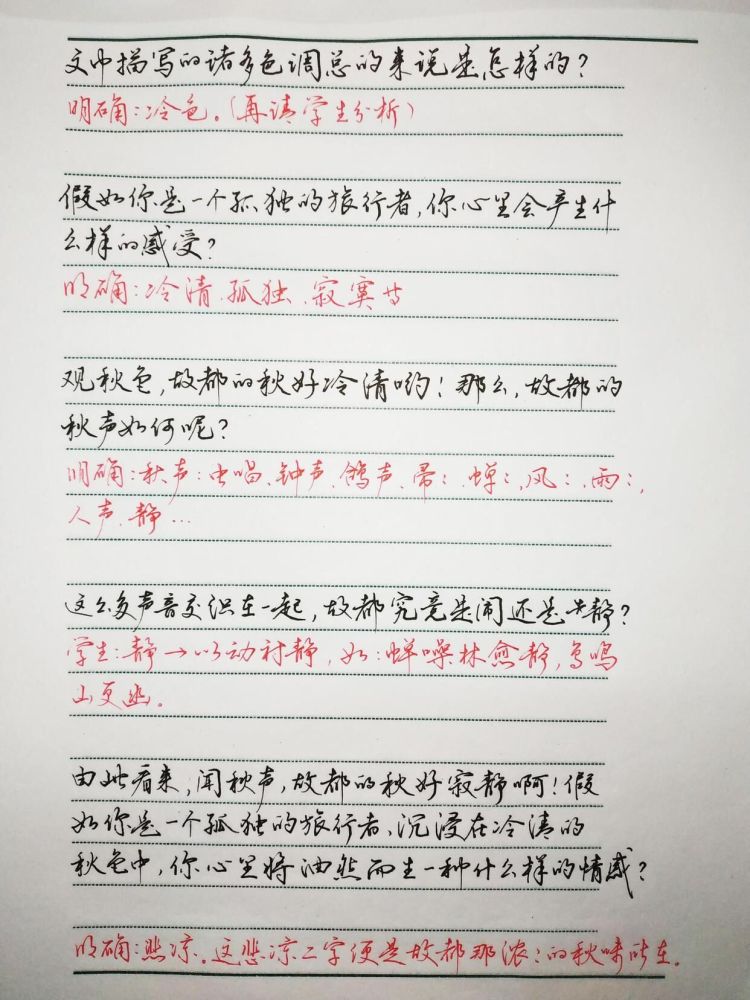 文中描写的诸多色调总的来说是怎样的？
明确：冷色。（再请学生分析）
假如你是一个孤独的旅行者，你心里会产生什
么样的感受？
明确：冷清、孤独、寂寞等
观秋色，故都的秋好冷清哟！那么，故都的
秋声如何呢？
明确：秋声：虫唱、钟声、鸽声、帚：、蝉：、风：、雨：、
人声、静…
这么多声音交织在一起，故都究竟是闹还是安静？
学生：静→以动衬静，如：蝉噪林愈静，鸟鸣
山更幽。
由此看来，闻秋声，故都的秋好寂静啊！假
如你是一个孤独的旅行者，沉浸在冷清的
秋色中，你心里将油然而生一种什么样的情感？
明确：悲凉。这悲凉二字便是故都那浓：的秋味所在。